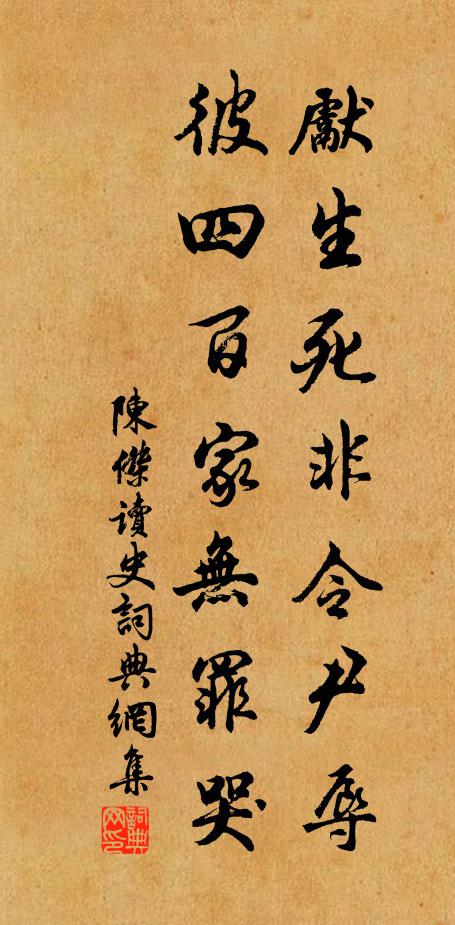 獻生死非令尹辱
彼四百家無罪哭
陳傑讀史詞典網集
詞典网印